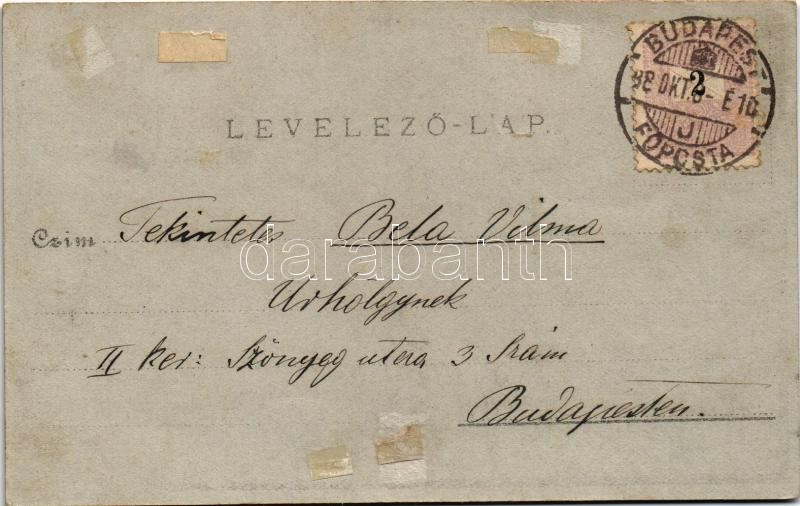 BUDAPEST
2
98 OKT. 6- E10
J
FŐPOSTA
LEVELEZŐ-LAP.
Czim Tekintetes Bela Vilma
darabanth
Úrhölgynek
II ker: Szönyeg utcza 3 Szám
Budapesten.